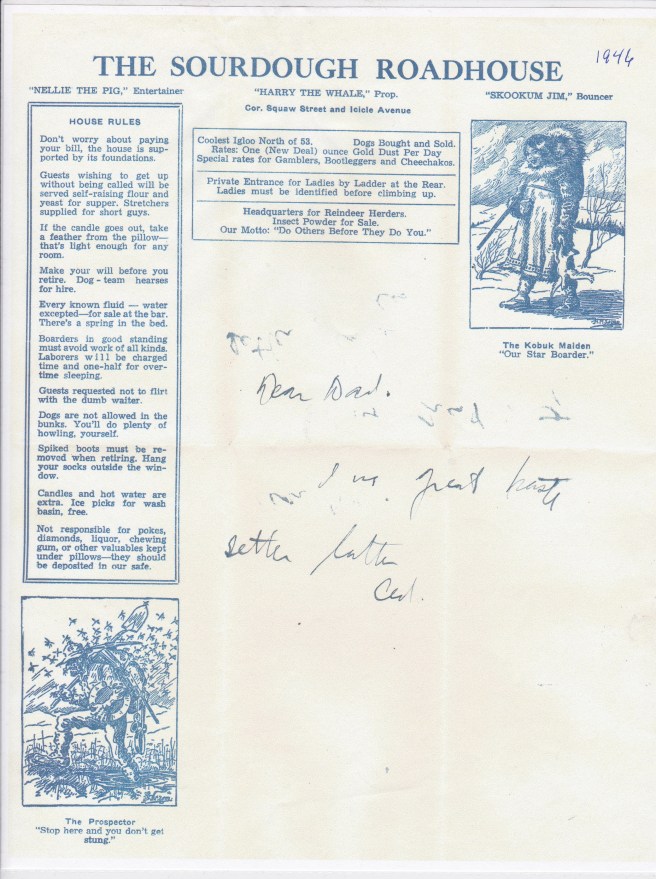 1946
THE SOURDOUGH ROADHOUSE
"NELLIE THE PIG," Entertainer
"HARRY THE WHALE," Prop.
"SKOOKUM JIM," Bouncer
Cor. Squaw Street and Icicle Avenue
HOUSE RULES
Don't worry about paying
your bill, the house is sup-
ported by its foundations.
Guests wishing to get up
without being called will be
served self-raising flour and
yeast for supper. Stretchers
supplied for short guys.
If the candle goes out, take
a feather from the pillow—
that's light enough for any
room.
Make your will before you
retire. Dog-team hearses
for hire.
Every known fluid — water
excepted—for sale at the bar.
There's a spring in the bed.
Boarders in good standing
must avoid work of all kinds.
Laborers will be charged
time and one-half for over-
time sleeping.
Guests requested not to flirt
with the dumb waiter.
Dogs are not allowed in the
bunks. You'll do plenty of
howling, yourself.
Spiked boots must be re-
moved when retiring. Hang
your socks outside the win-
dow.
Candles and hot water are
extra. Ice picks for wash
basin, free.
Not responsible for pokes,
diamonds, liquor, chewing
gum, or other valuables kept
under pillows—they should
be deposited in our safe.
Coolest Igloo North of 53. Dogs Bought and Sold.
Rates: One (New Deal) ounce Gold Dust Per Day
Special rates for Gamblers, Bootleggers and Cheechakos.
Private Entrance for Ladies by Ladder at the Rear.
Ladies must be identified before climbing up.
Headquarters for Reindeer Herders.
Insect Powder for Sale.
Our Motto: "Do Others Before They Do You."
The Kobuk Maiden
"Our Star Boarder."
Dear Dad.
great haste
letter
Ced.
The Prospector
"Stop here and you don't get
stung."